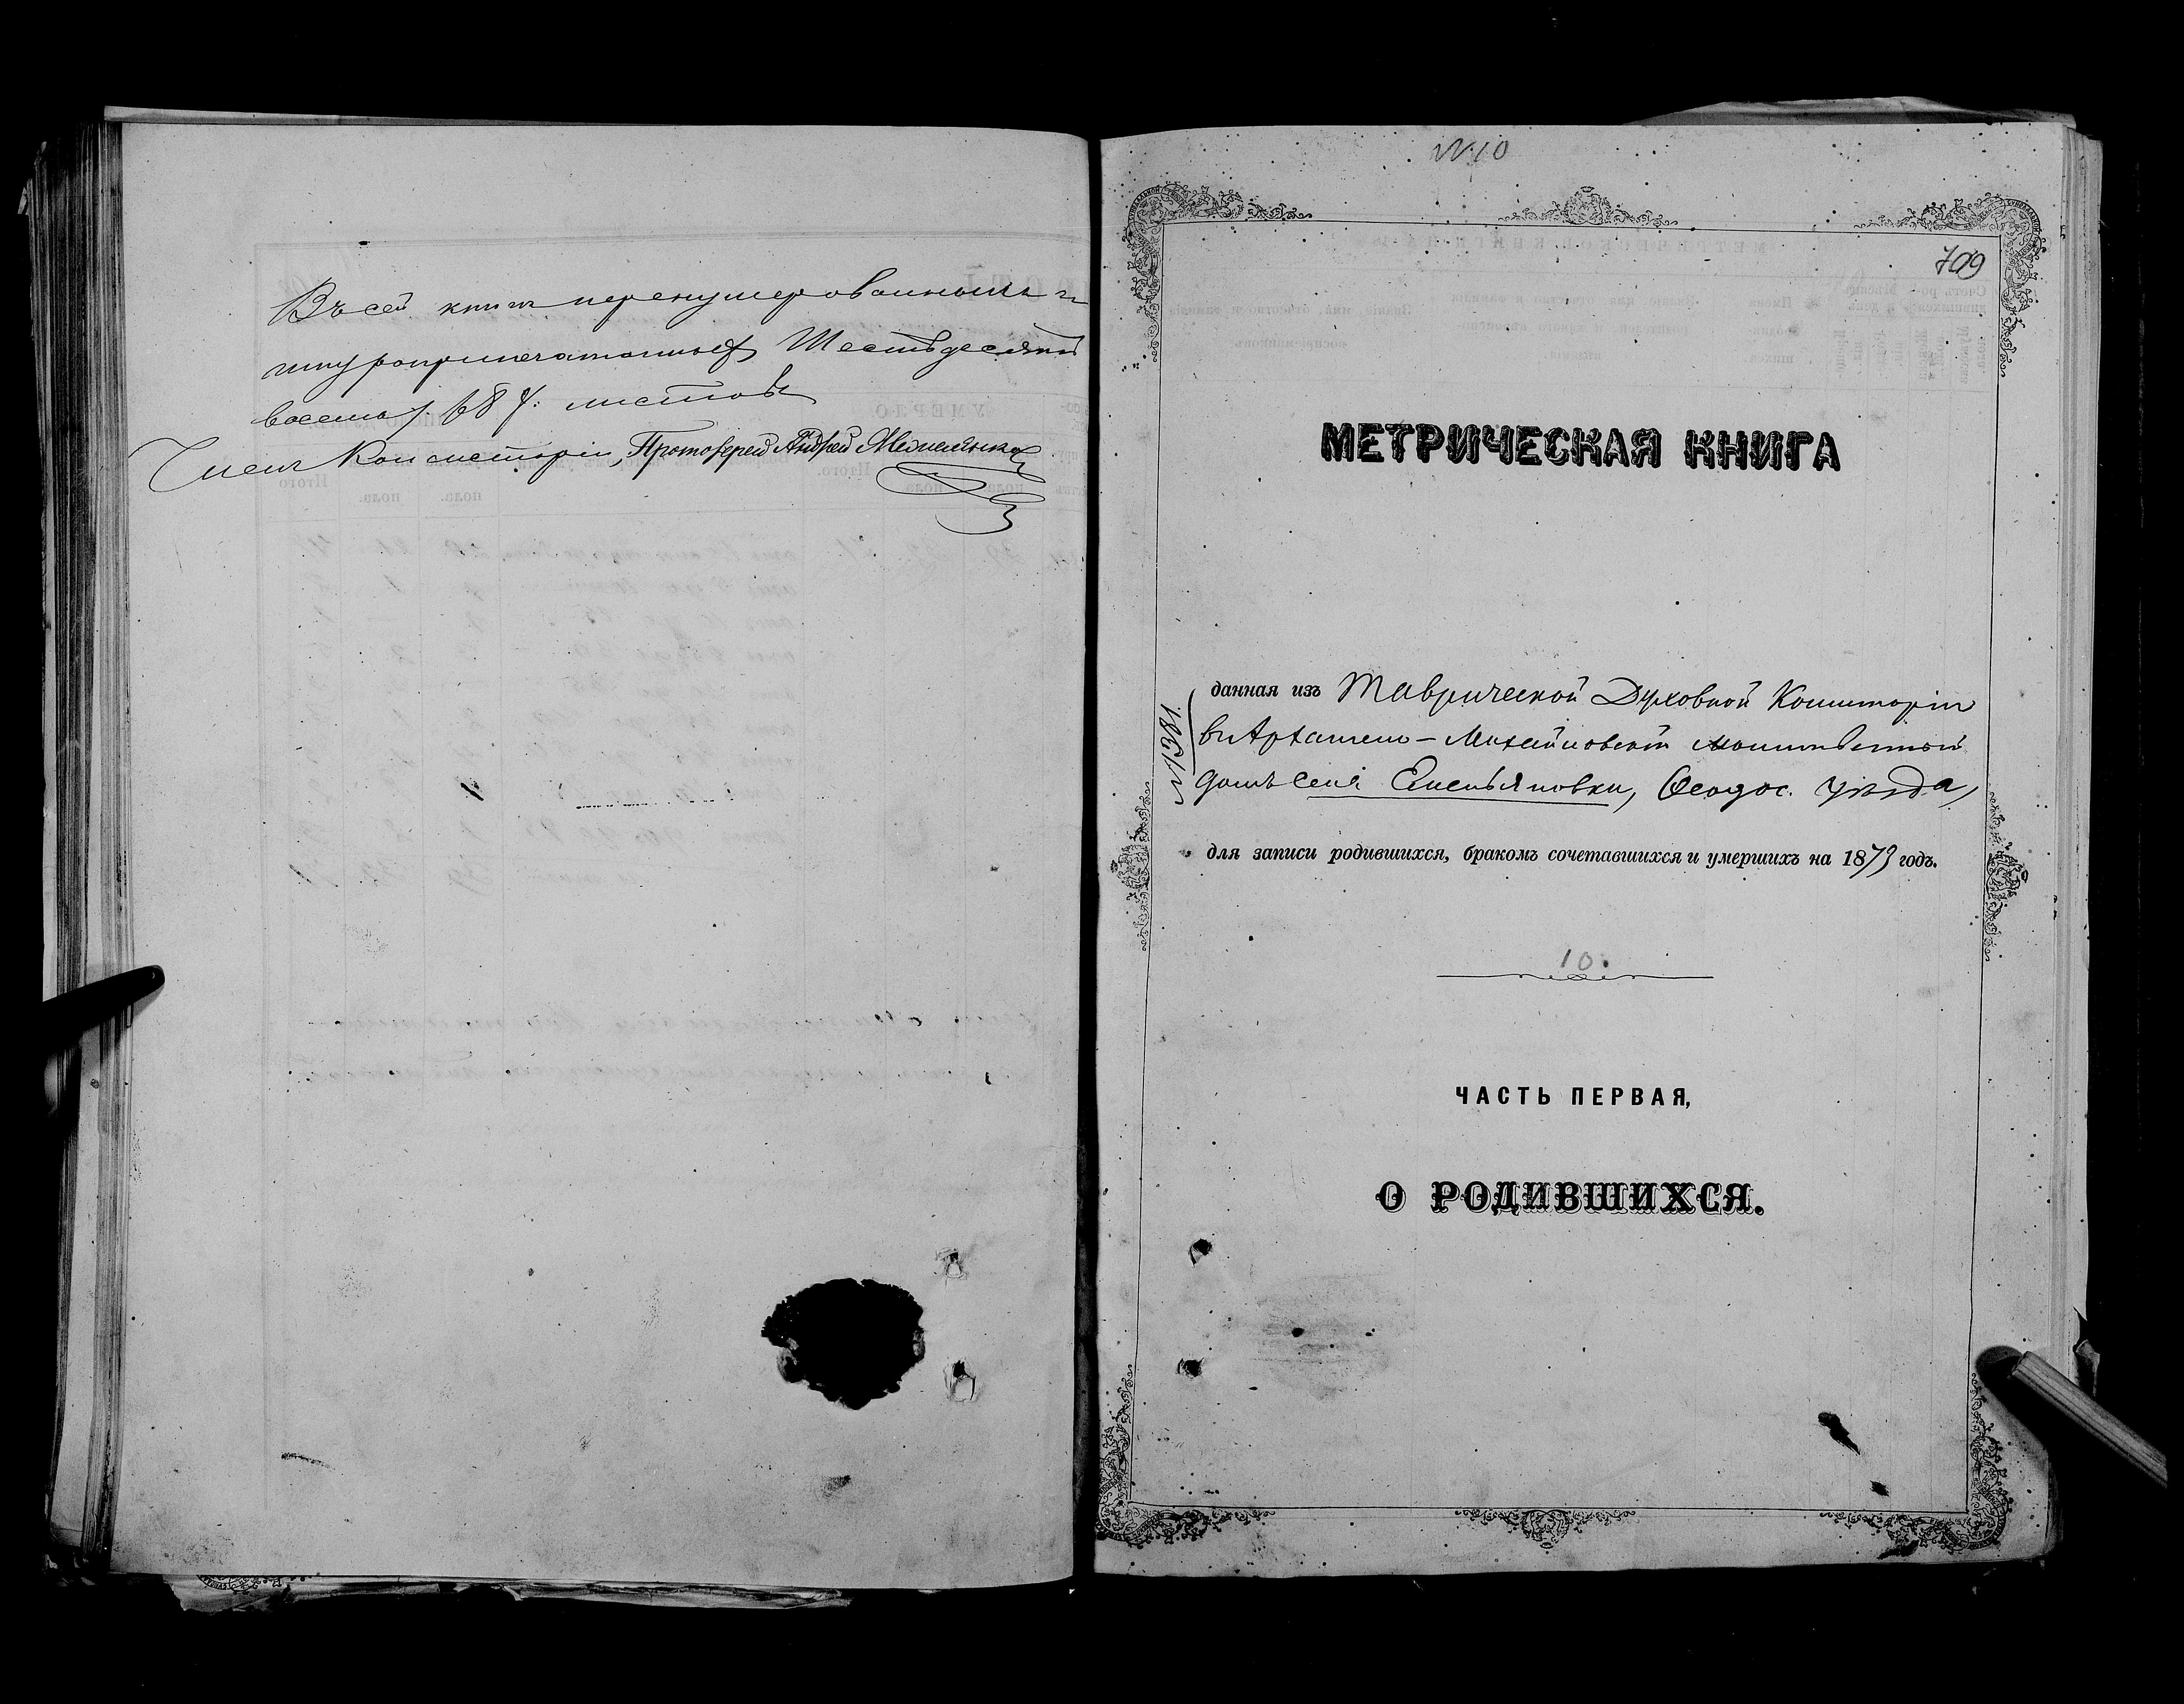 Въ сей книгѣ перенумерованныхъ и
шнуроприпечатанныхъ Шестьдесятъ
восемь /:68:/ листовъ
Членъ Консисторіи, Протоіерей Андрей
№ 10
709
МЕТРИЧЕСКАЯ КНИГА
№ 1381.
данная изъ Таврической Духовной Консисторіи
въ Архангело-Михайловскій молитвенный
домъ села Емельяновки, Ѳеодос. уѣзда,
для записи родившихся, бракомъ сочетавшихся и умершихъ на 1873 годъ.
10.
ЧАСТЬ ПЕРВАЯ,
О РОДИВШИХСЯ.